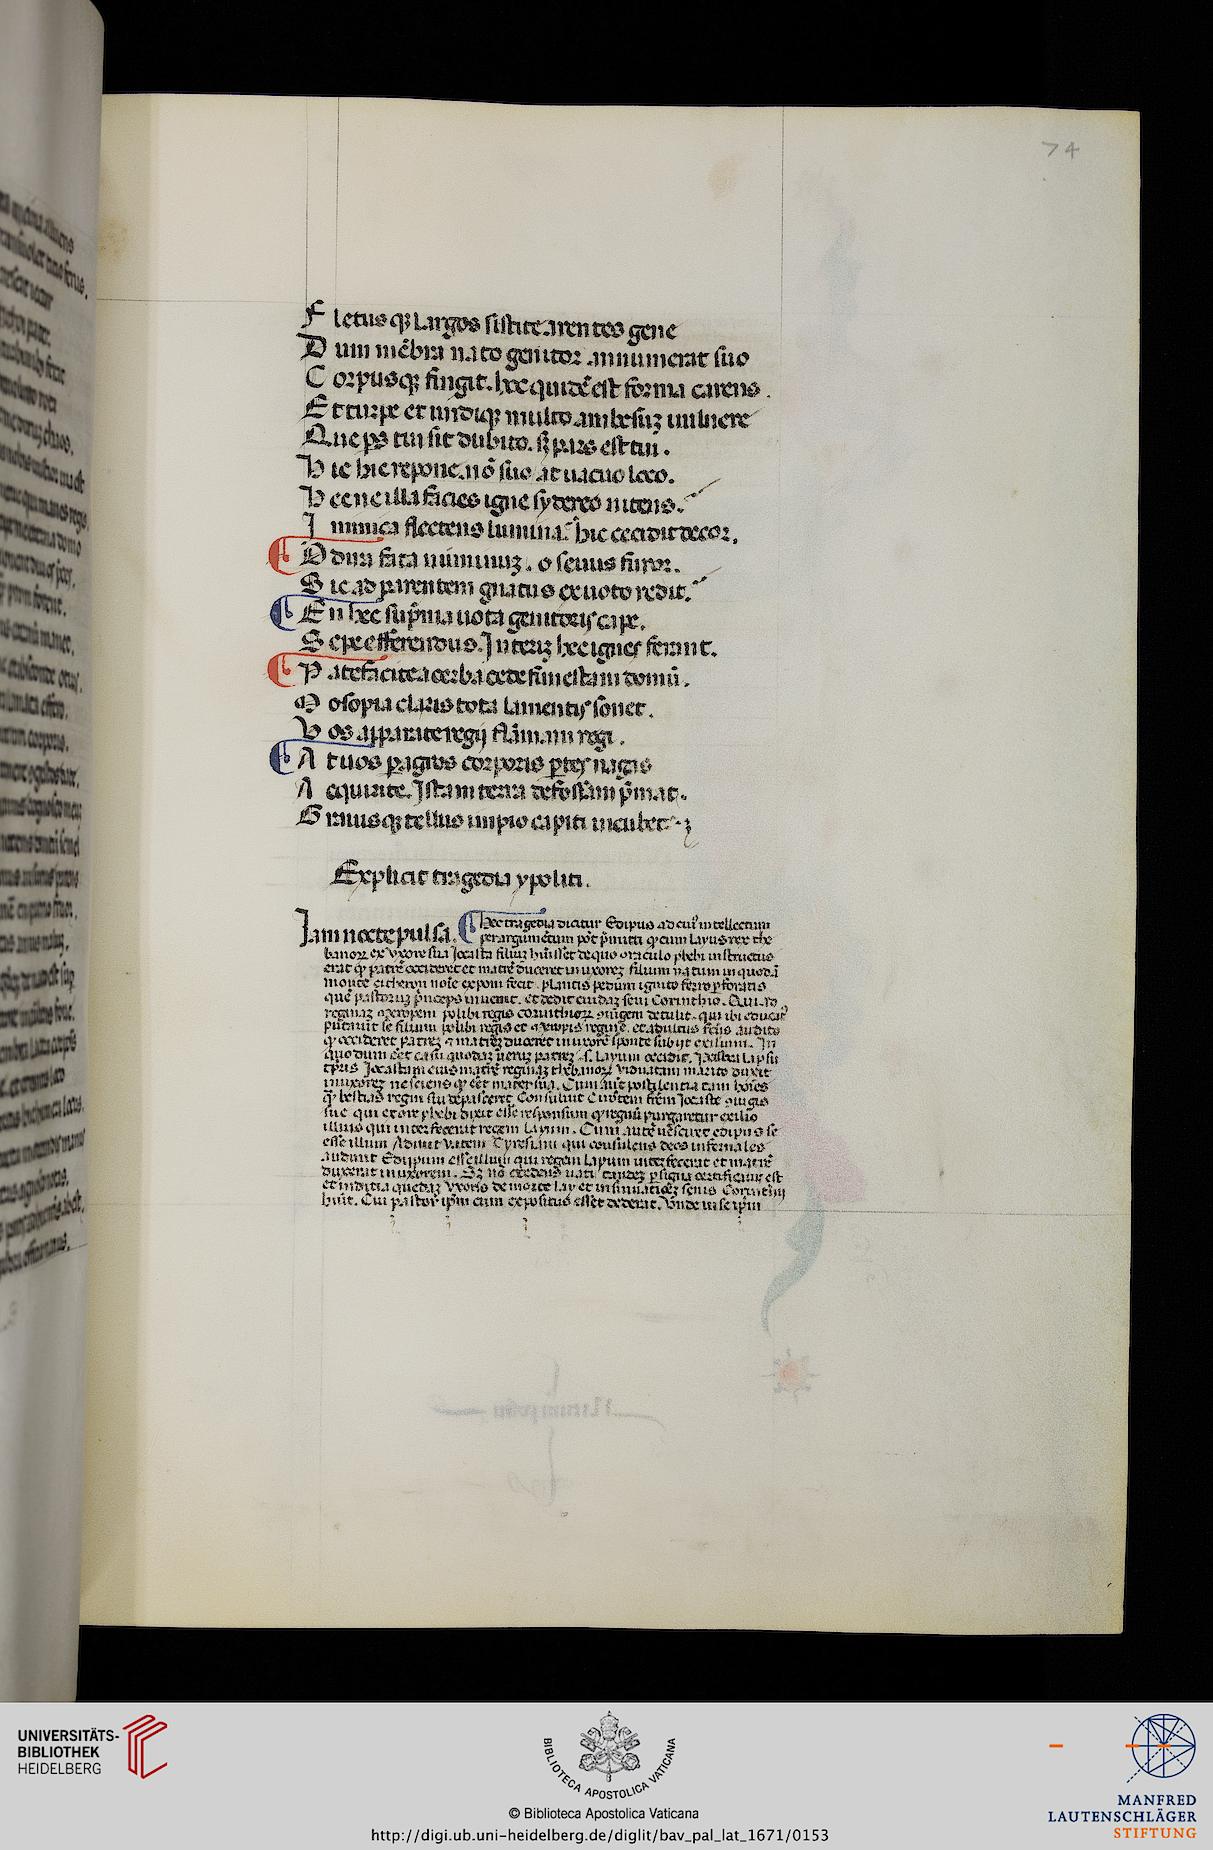 74
F letusq; largos sistite arentes gene
D um mēbra nato genitor annumerat suo
C orpusq; fingit. hec quidē est forma carens.
E t turpe et undiq; multo ambesuȝ uulnere
Q ue ps tui sit dubito. sȝ pars est tui.
H ic hic repone. nō suo at uacuo loco.
H eccne illa facies igne sydereo nitens.
I nimica flectens lumina. hic cecidit decor.
O dura fata numinuȝ. o seuus furor.
S ic ad parentem gnatus ex uoto redit.
E n hec sup̄ma uota genitoris cape.
S epe efferendus. Interiȝ hec ignes ferant.
P atefacite acerba cede funestam domū.
M osopia claris tota lamentis sonet.
V os apparate regij flāmam rogi.
A t uos p agros corporis ptes uagas
A nquirite. Istam terra defossam p̄mat.
G rauisq; tellus impio capiti incubet.
Explicit tragedia ypoliti.
Iam nocte pulsa. Hec tragedia dicitur Edipus ad cuiꝰ intellectum
per argumētum pōt p̄mitti q cum Layus rex the
banorꝝ ex uxore sua Jocasta filiuȝ huisset de quo oraculo phebi instructus
erat q patrē occideret et matrē duceret in uxoreȝ filium natum in quodā
monte citheron noīe exponi fecit. plantis pedum ignito ferro pforatis
quē pastoruȝ p̄nceps inuenit. et dedit cuidaȝ seni Corinthio. Qui ad
reginaȝ meropem polibi regis corinthiorꝝ ꝯiugem detulit. qui ibi educatꝰ
putauit se filium polibi regis et meropis regine. et adultus fcūs audito
q occideret patreȝ et matreȝ duceret in uxorē sponte subijt exilium. In
quo dum eēt casu quodaȝ ueruȝ patreȝ .s. Layum occidit. Postea lapsu
tpris Jocastam eius matrē reginaȝ thebanorꝝ uiduatam marito duxit
in uxoreȝ nesciens q eēt mater sua. Cum aūt pestilentia tam hoīes
q bestias regni sui depasceret Consuluit Creōtem frēm Jocaste ꝯiugis
sue qui ex ore phebi dixit esse responsum q regnū purgaretur exilio
illius qui interfecerat regem Layum. Cum autē nesciret edipus se
esse illum Adiuit uatem Tyresiam qui consulens deos infernales
audiuit Edippum esse illum qui regem Layum interfecerat et matrē
duxerat in uxorem. Sȝ nō credens uati tandeȝ p signa certificatur est
et indicia quedaȝ uxoris de morte Lay et insinuationeȝ senis Corinthij
huit. Cui pastor ipm cum expositus esset dederat. Vnde in se ipm
UNIVERSITÄTS-
BIBLIOTHEK
HEIDELBERG
BIBLIOTECA APOSTOLICA VATICANA
© Biblioteca Apostolica Vaticana
http://digi.ub.uni-heidelberg.de/diglit/bav_pal_lat_1671/0153
MANFRED
LAUTENSCHLÄGER
STIFTUNG